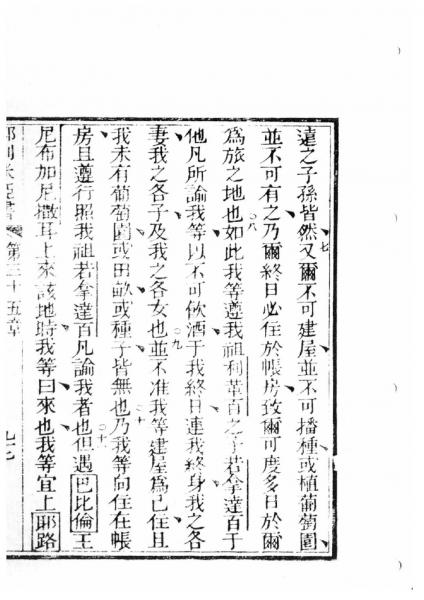 達之子孫皆然又爾不可建屋並不可播種或植葡萄園
七
並不可有之乃爾終日必住於帳房致爾可度多日於爾
為旅之地也如此我等遵我祖利革百之子若拿達百于
八
他凡所論我等以不可飲酒于我終日連我終身我之各
妻我之各子及我之各女也並不准我等建屋為已住且
九
我未有葡萄園或田畝或種子皆無也乃我等向住在帳
十
房且遵行照我祖若拿達百凡論我者也但遇巴比倫王
十一
尼布加尼撒耳上來該地時我等曰來也我等宜上耶路
耶利米亞書 第三十五章